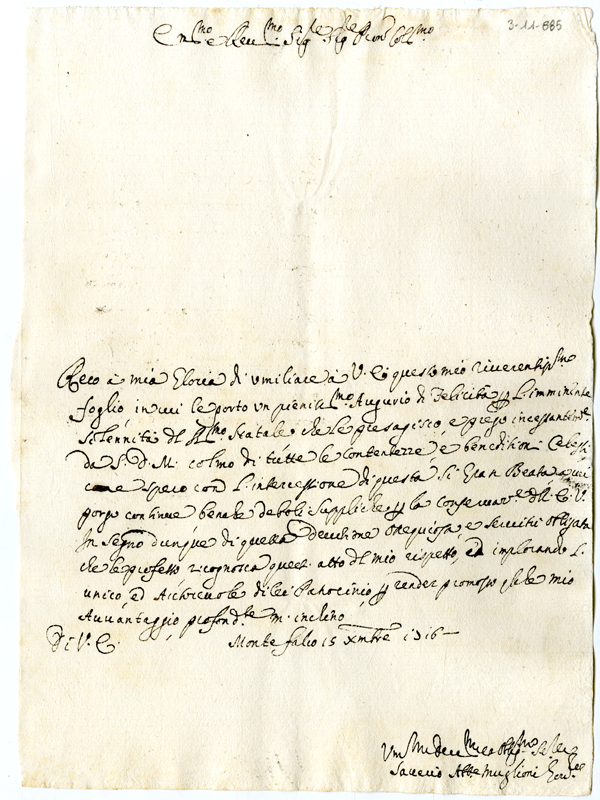 3-11-885
Em.mo e Rev.mo Sig.re Sig.re Pron Col.mo
Reco à mia Gloria di umiliare à V. E. questo mio riverentiss.mo
foglio, in cui le porto un pieniss.mo Augurio di Felicità p l'imminente
Solennità del SS.mo Natale, che le presagisco, e priego incessantem.te
da S. D. M. colmo di tutte le contentezze, e beneditioni Celesti
come spero con l'intercessione di questa Si Gran Beata a cui
porgo continue benche deboli suppliche p la conservat.e dell' E. V.
In segno dunque di questa divotione ossequiosa, e servitù obligata
che le professo ricognosca quest' atto del mio rispetto, ed implorando l'
unico, ed Autorevole di lei Patrocinio, p render promosso sempre mio
Avvantaggio, profond.te m' inchino
Di V. E. Monte falco 15 Xmbre 1716
Um.mo Dev.mo et Obblig.mo Se.re
Saverio